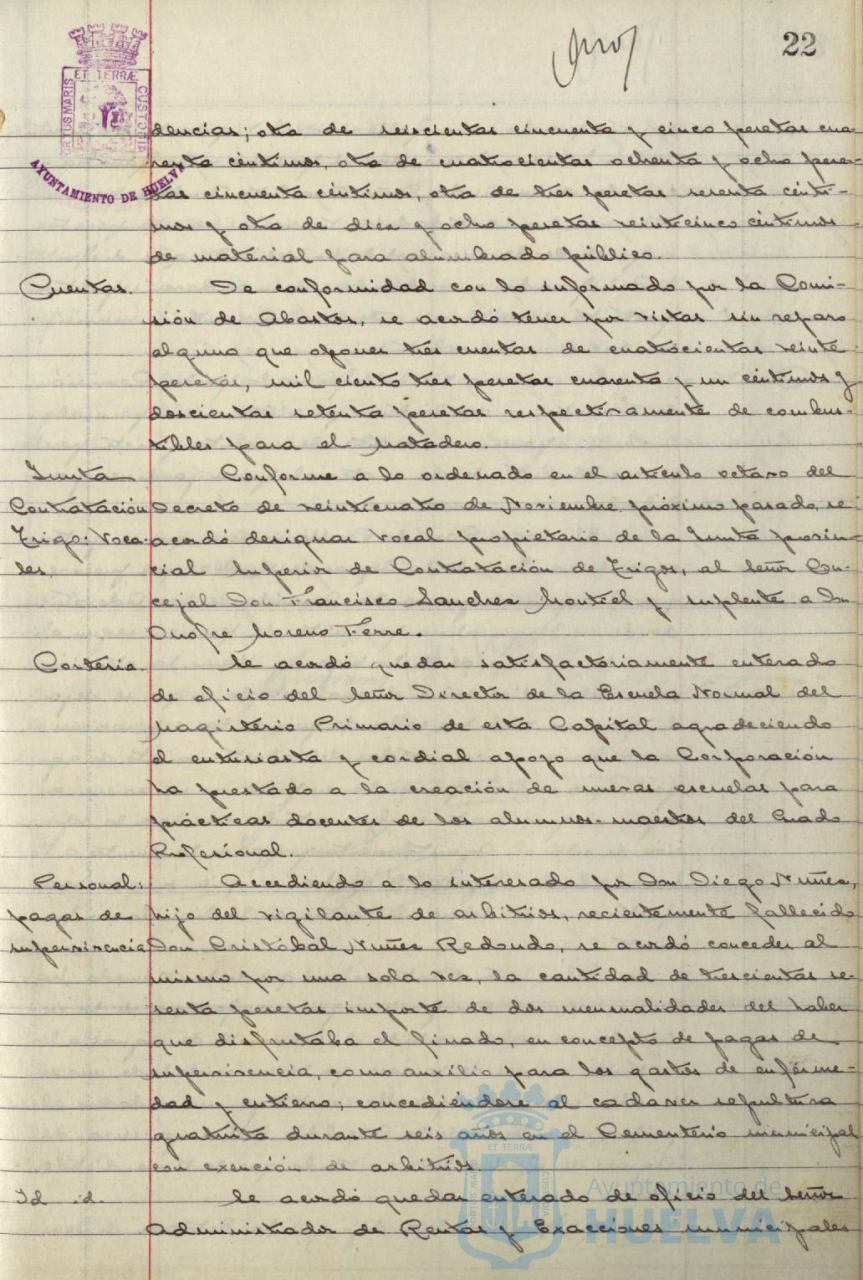 22
ET TERRÆ
PORTUS MARIS
CUSTODIA
AYUNTAMIENTO DE HUELVA
dencias; otra de seiscientas cincuenta y cinco pesetas cua-
renta céntimos, otra de cuatrocientas ochenta y ocho pese-
tas cincuenta céntimos, otra de tres pesetas sesenta cénti-
mos y otra de diez y ocho pesetas veinticinco céntimos
de material para alumbrado público.
Cuentas. De conformidad con lo informado por la Comi-
sión de Abastos, se acordó tener por vistas sin reparo
alguno que oponer tres cuentas de cuatrocientas veinte
pesetas, mil ciento tres pesetas cuarenta y un céntimos y
doscientas setenta pesetas respectivamente de combus-
tibles para el Matadero.
Junta Conforme a lo ordenado en el artículo octavo del
Contratación Decreto de veinticuatro de Noviembre próximo pasado, se
Trigo: Voca- acordó designar vocal propietario de la Junta provin-
les. cial Superior de Contratación de Trigos, al Señor Con-
cejal Don Francisco Sanchez Montiel y suplente a Don
Onofre Moreno Ferre.
Cortesía. Se acordó quedar satisfactoriamente enterado
de oficio del Señor Director de la Escuela Normal del
Magisterio Primario de esta Capital agradeciendo
el entusiasta y cordial apoyo que la Corporación
ha prestado a la creación de nuevas escuelas para
prácticas docentes de los alumnos-maestros del Grado
Profesional.
Personal: Accediendo a lo interesado por Don Diego Nuñez,
pagas de hijo del vigilante de arbitrios, recientemente fallecido
supervivencia Don Cristóbal Nuñez Redondo, se acordó conceder al
mismo por una sola vez, la cantidad de trescientas se-
senta pesetas importe de dos mensualidades del haber
que disfrutaba el finado, en concepto de pagas de
supervivencia, como auxilio para los gastos de enferme-
dad y entierro; concediéndose al cadaver sepultura
gratuita durante seis años en el Cementerio municipal
con exención de arbitrios.
Id. id. Se acordó quedar enterado de oficio del Señor
Administrador de Rentas y Exacciones municipales
Ayuntamiento de
HUELVA